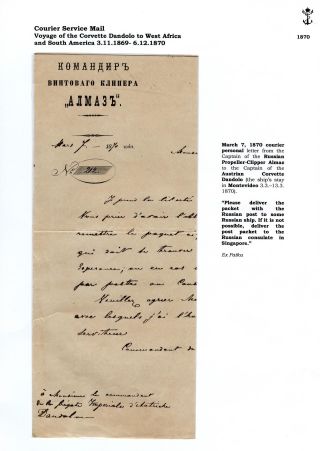 Courier Service Mail
Voyage of the Corvette Dandolo to West Africa
and South America 3.11.1869- 6.12.1870
1870
КОМАНДИРЪ
ВИНТОВАГО КЛИПЕРА
„АЛМАЗЪ“.
Mars 7. 1870
№ 212
J'ai
Vous prier d'avoir l'
remettre le paquet
qui doit se trouver
par postes au Cons
Veuillez agréer
avec lesquels j'ai l'ho
serviteur
Commandant d
à Monsieur le commandant
de la frégate Impériale d'Autriche
Dandolo
March 7, 1870 courier
personal letter from the
Captain of the Russian
Propeller-Clipper Almaz
to the Captain of the
Austrian Corvette
Dandolo (the ship's stay
in Montevideo 3.3.-13.3.
1870).
"Please deliver the
packet with the
Russian post to some
Russian ship. If it is not
possible, deliver the
post packet to the
Russian consulate in
Singapore."
Ex Patka